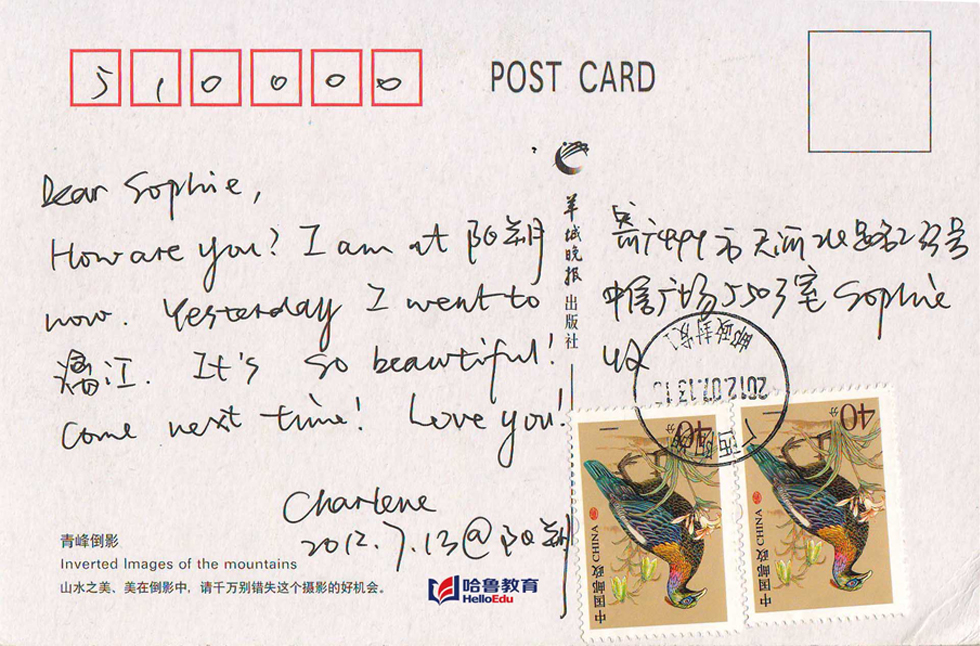 510000
POST CARD
Dear Sophie,
How are you? I am at 阳朔
now. Yesterday I went to
漓江. It's so beautiful!
Come next time! Love you!
Charlene
2012.7.13@阳朔
羊城晚报出版社
寄广州市天河北路233号
中信广场5503室 Sophie
收
邮政封发
2012.07.13.1
广西阳朔
40分
中国邮政 CHINA
40分
中国邮政 CHINA
青峰倒影
Inverted Images of the mountains
山水之美、美在倒影中，请千万别错失这个摄影的好机会。
哈鲁教育
HelloEdu